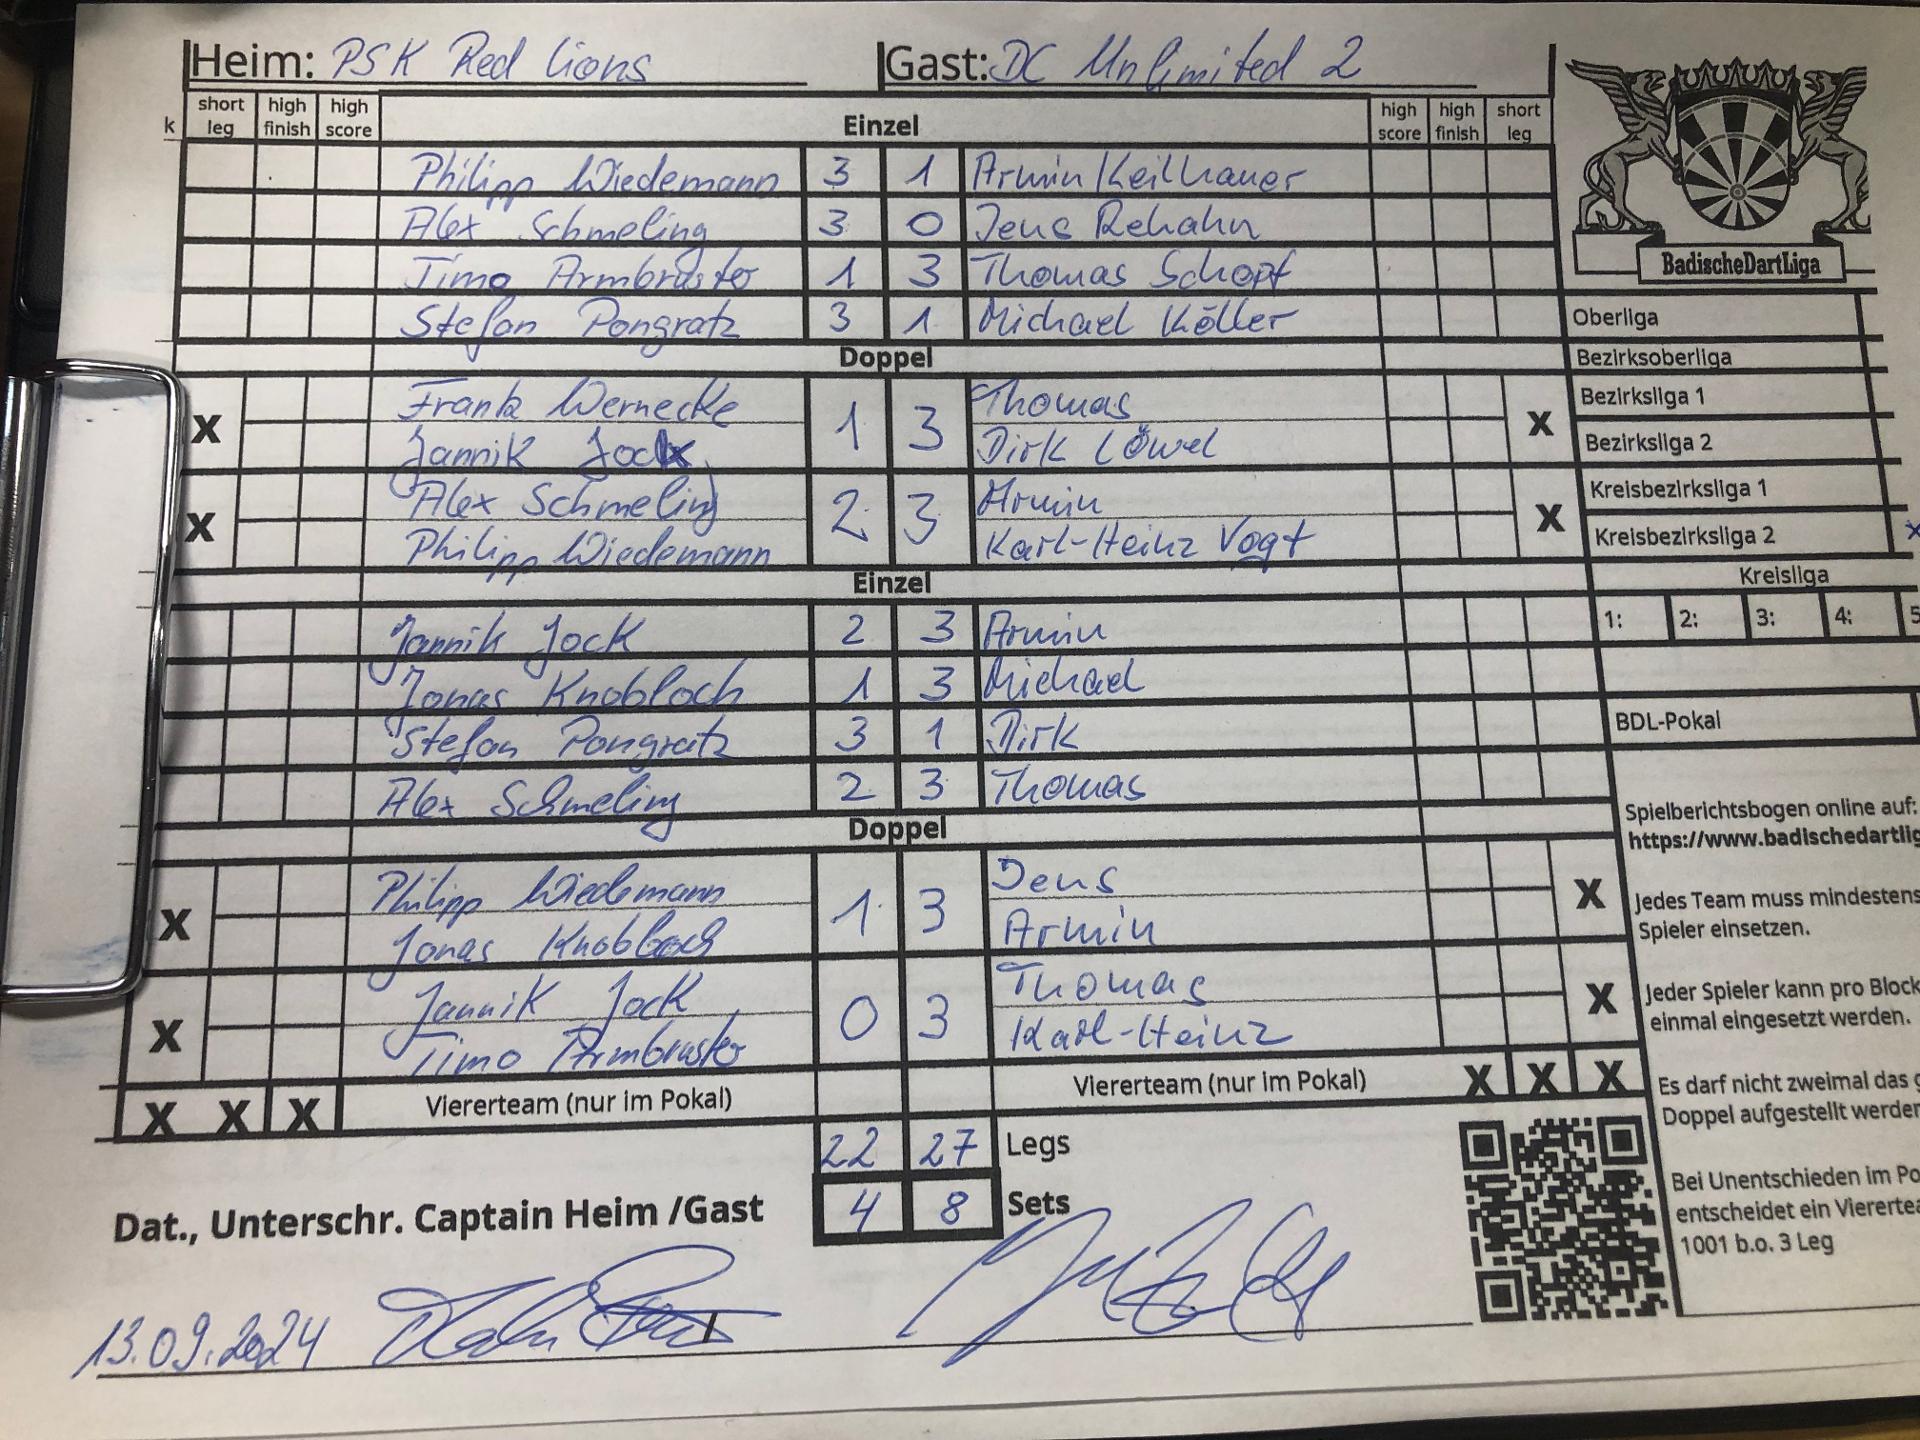 Heim: PSK Red Lions Gast: DC Unlimited 2
k short leg high finish high score Einzel high score high finish short leg
Philipp Wiedemann 3 1 Armin Keilhauer
Alex Schmeling 3 0 Jens Rehahn
Timo Armbruster 1 3 Thomas Schopf
Stefan Pongratz 3 1 Michael Köller
Doppel
Frank Wernecke Thomas
X 1 3 X
Jannik Jock Dirk Löwel
Alex Schmeling Armin
X 2 3 X
Philipp Wiedemann Karl-Heinz Vogt
Einzel
Jannik Jock 2 3 Armin
Jonas Knobloch 1 3 Michael
Stefan Pongratz 3 1 Dirk
Alex Schmeling 2 3 Thomas
Doppel
Philipp Wiedemann Jens
X 1 3 X
Jonas Knobloch Armin
Jannik Jock Thomas
X 0 3 X
Timo Armbruster Karl-Heinz
X X X Viererteam (nur im Pokal) Viererteam (nur im Pokal) X X X
22 27 Legs
4 8 Sets
Dat., Unterschr. Captain Heim /Gast
13.09.2024
BadischeDartLiga
Oberliga
Bezirksoberliga
Bezirksliga 1
Bezirksliga 2
Kreisbezirksliga 1
Kreisbezirksliga 2 x
Kreisliga
1: 2: 3: 4: 5
BDL-Pokal
Spielberichtsbogen online auf:
https://www.badischedartlig
Jedes Team muss mindestens
Spieler einsetzen.
Jeder Spieler kann pro Block
einmal eingesetzt werden.
Es darf nicht zweimal das g
Doppel aufgestellt werden
Bei Unentschieden im Po
entscheidet ein Vierertea
1001 b.o. 3 Leg